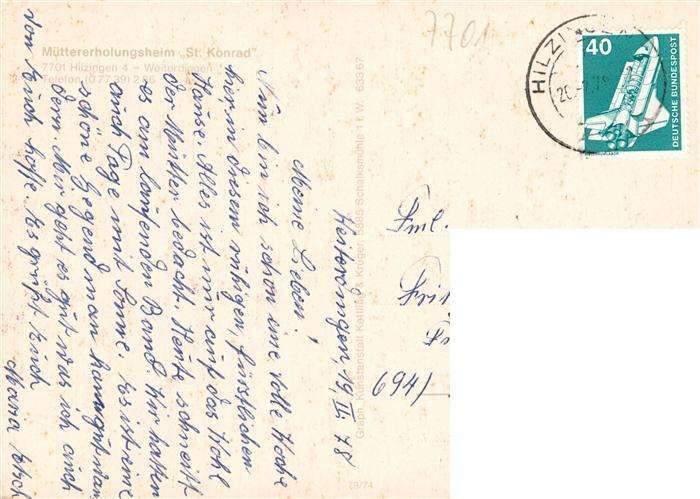 Müttererholungsheim „St. Konrad"
7701 Hilzingen 4 – Weiterdingen
Telefon (0 77 39) 2 86
7701
HILZINGEN
40
DEUTSCHE BUNDESPOST
Weiterdingen, 19. II. 78
Meine Lieben!
Nun bin ich schon eine volle Woche
hier in diesem ruhigen, fürstlichen
Hause. Alles ist nur auf das Wohl
der Mütter bedacht. Heute schneit
es am laufenden Band. Wir hatten
auch Tage mit Sonne. Es ist eine
schöne Gegend man kann gut wan
dern Mir geht es gut was ich auch
von Euch hoffe. Es grüßt Euch
Maria
Fml.
694/
Graph. Kunstanstalt Kettling & Krüger, 5885 Schalksmühle 1 i. W. 63367
79/74